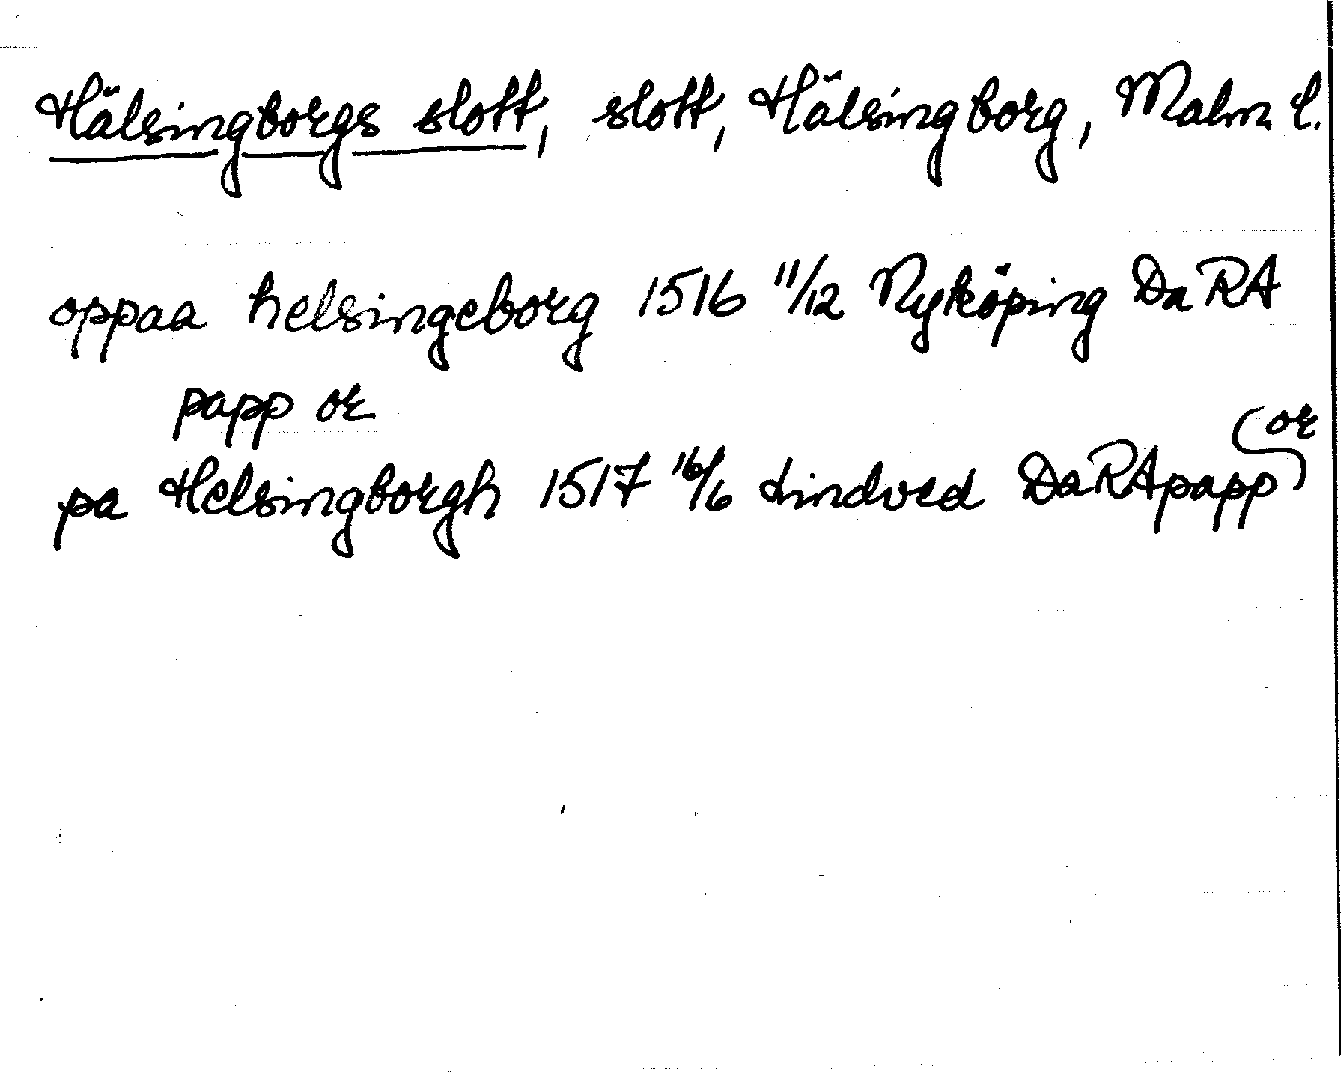 Hälsingborgs slott, slott, Hälsingborg, Malm l.
oppaa helsingeborg 1516 11/12 Nyköping DaRA
papp or
pa Helsingborgh 1517 16/6 Lindved DaRApapp or